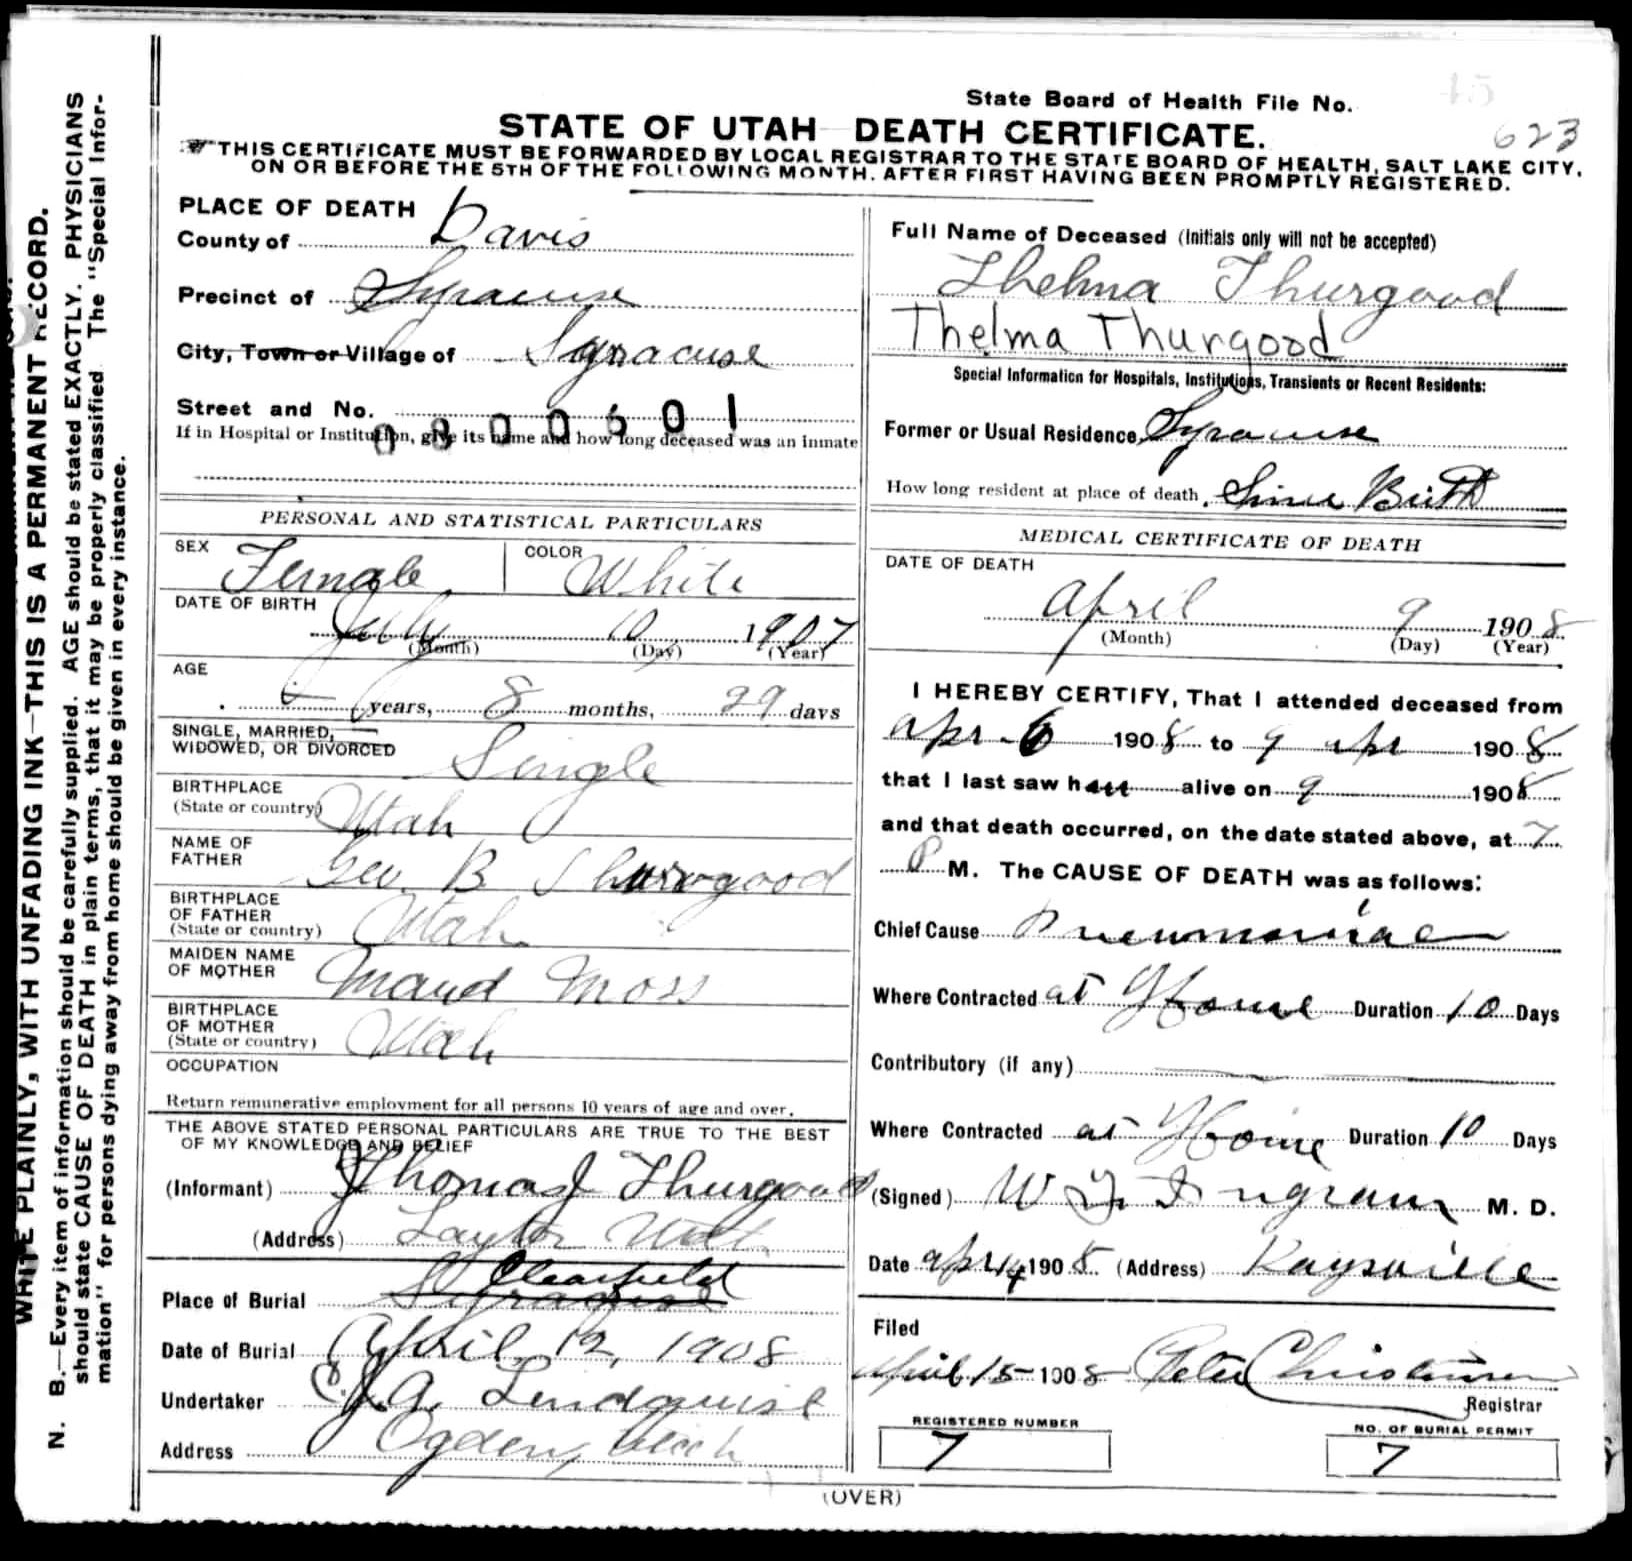 WRITE PLAINLY, WITH UNFADING INK—THIS IS A PERMANENT RECORD.
N. B.—Every item of information should be carefully supplied. AGE should be stated EXACTLY. PHYSICIANS
should state CAUSE OF DEATH in plain terms, that it may be properly classified. The "Special Infor-
mation" for persons dying away from home should be given in every instance.
45
State Board of Health File No.
623
STATE OF UTAH—DEATH CERTIFICATE.
THIS CERTIFICATE MUST BE FORWARDED BY LOCAL REGISTRAR TO THE STATE BOARD OF HEALTH, SALT LAKE CITY,
ON OR BEFORE THE 5TH OF THE FOLLOWING MONTH. AFTER FIRST HAVING BEEN PROMPTLY REGISTERED.
PLACE OF DEATH
County of Davis
Precinct of Syracuse
City, Town or Village of Syracuse
Street and No.
0800601
If in Hospital or Institution, give its name and how long deceased was an inmate
PERSONAL AND STATISTICAL PARTICULARS
SEX Female COLOR White
DATE OF BIRTH
July 10 1907
(Month) (Day) (Year)
AGE
years, 8 months, 29 days
SINGLE, MARRIED,
WIDOWED, OR DIVORCED Single
BIRTHPLACE
(State or country) Utah
NAME OF
FATHER Geo. B Thurgood
BIRTHPLACE
OF FATHER
(State or country) Utah
MAIDEN NAME
OF MOTHER Maud Moss
BIRTHPLACE
OF MOTHER
(State or country) Utah
OCCUPATION
Return remunerative employment for all persons 10 years of age and over.
THE ABOVE STATED PERSONAL PARTICULARS ARE TRUE TO THE BEST
OF MY KNOWLEDGE AND BELIEF
(Informant) Thomas J Thurgood
(Address) Layton Utah
Clearfield
Place of Burial Syracuse
Date of Burial April 12, 1908
Undertaker C. J. A. Lindquist
Address Ogden, Utah
Full Name of Deceased (Initials only will not be accepted)
Thelma Thurgood
Thelma Thurgood
Special Information for Hospitals, Institutions, Transients or Recent Residents:
Former or Usual Residence Syracuse
How long resident at place of death. Since Birth
MEDICAL CERTIFICATE OF DEATH
DATE OF DEATH
April 9 1908
(Month) (Day) (Year)
I HEREBY CERTIFY, That I attended deceased from
Apr. 6 1908 to 9 apr 1908
that I last saw her alive on 9 1908
and that death occurred, on the date stated above, at 7
P M. The CAUSE OF DEATH was as follows:
Chief Cause Pneumoniae
Where Contracted at Home Duration 10 Days
Contributory (if any)
Where Contracted at Home Duration 10 Days
(Signed) W Ingram M. D.
Date Apr 14 1908. (Address) Kaysville
Filed
April 15 1908 Peter Christensen
Registrar
REGISTERED NUMBER
7
NO. OF BURIAL PERMIT
7
(OVER)